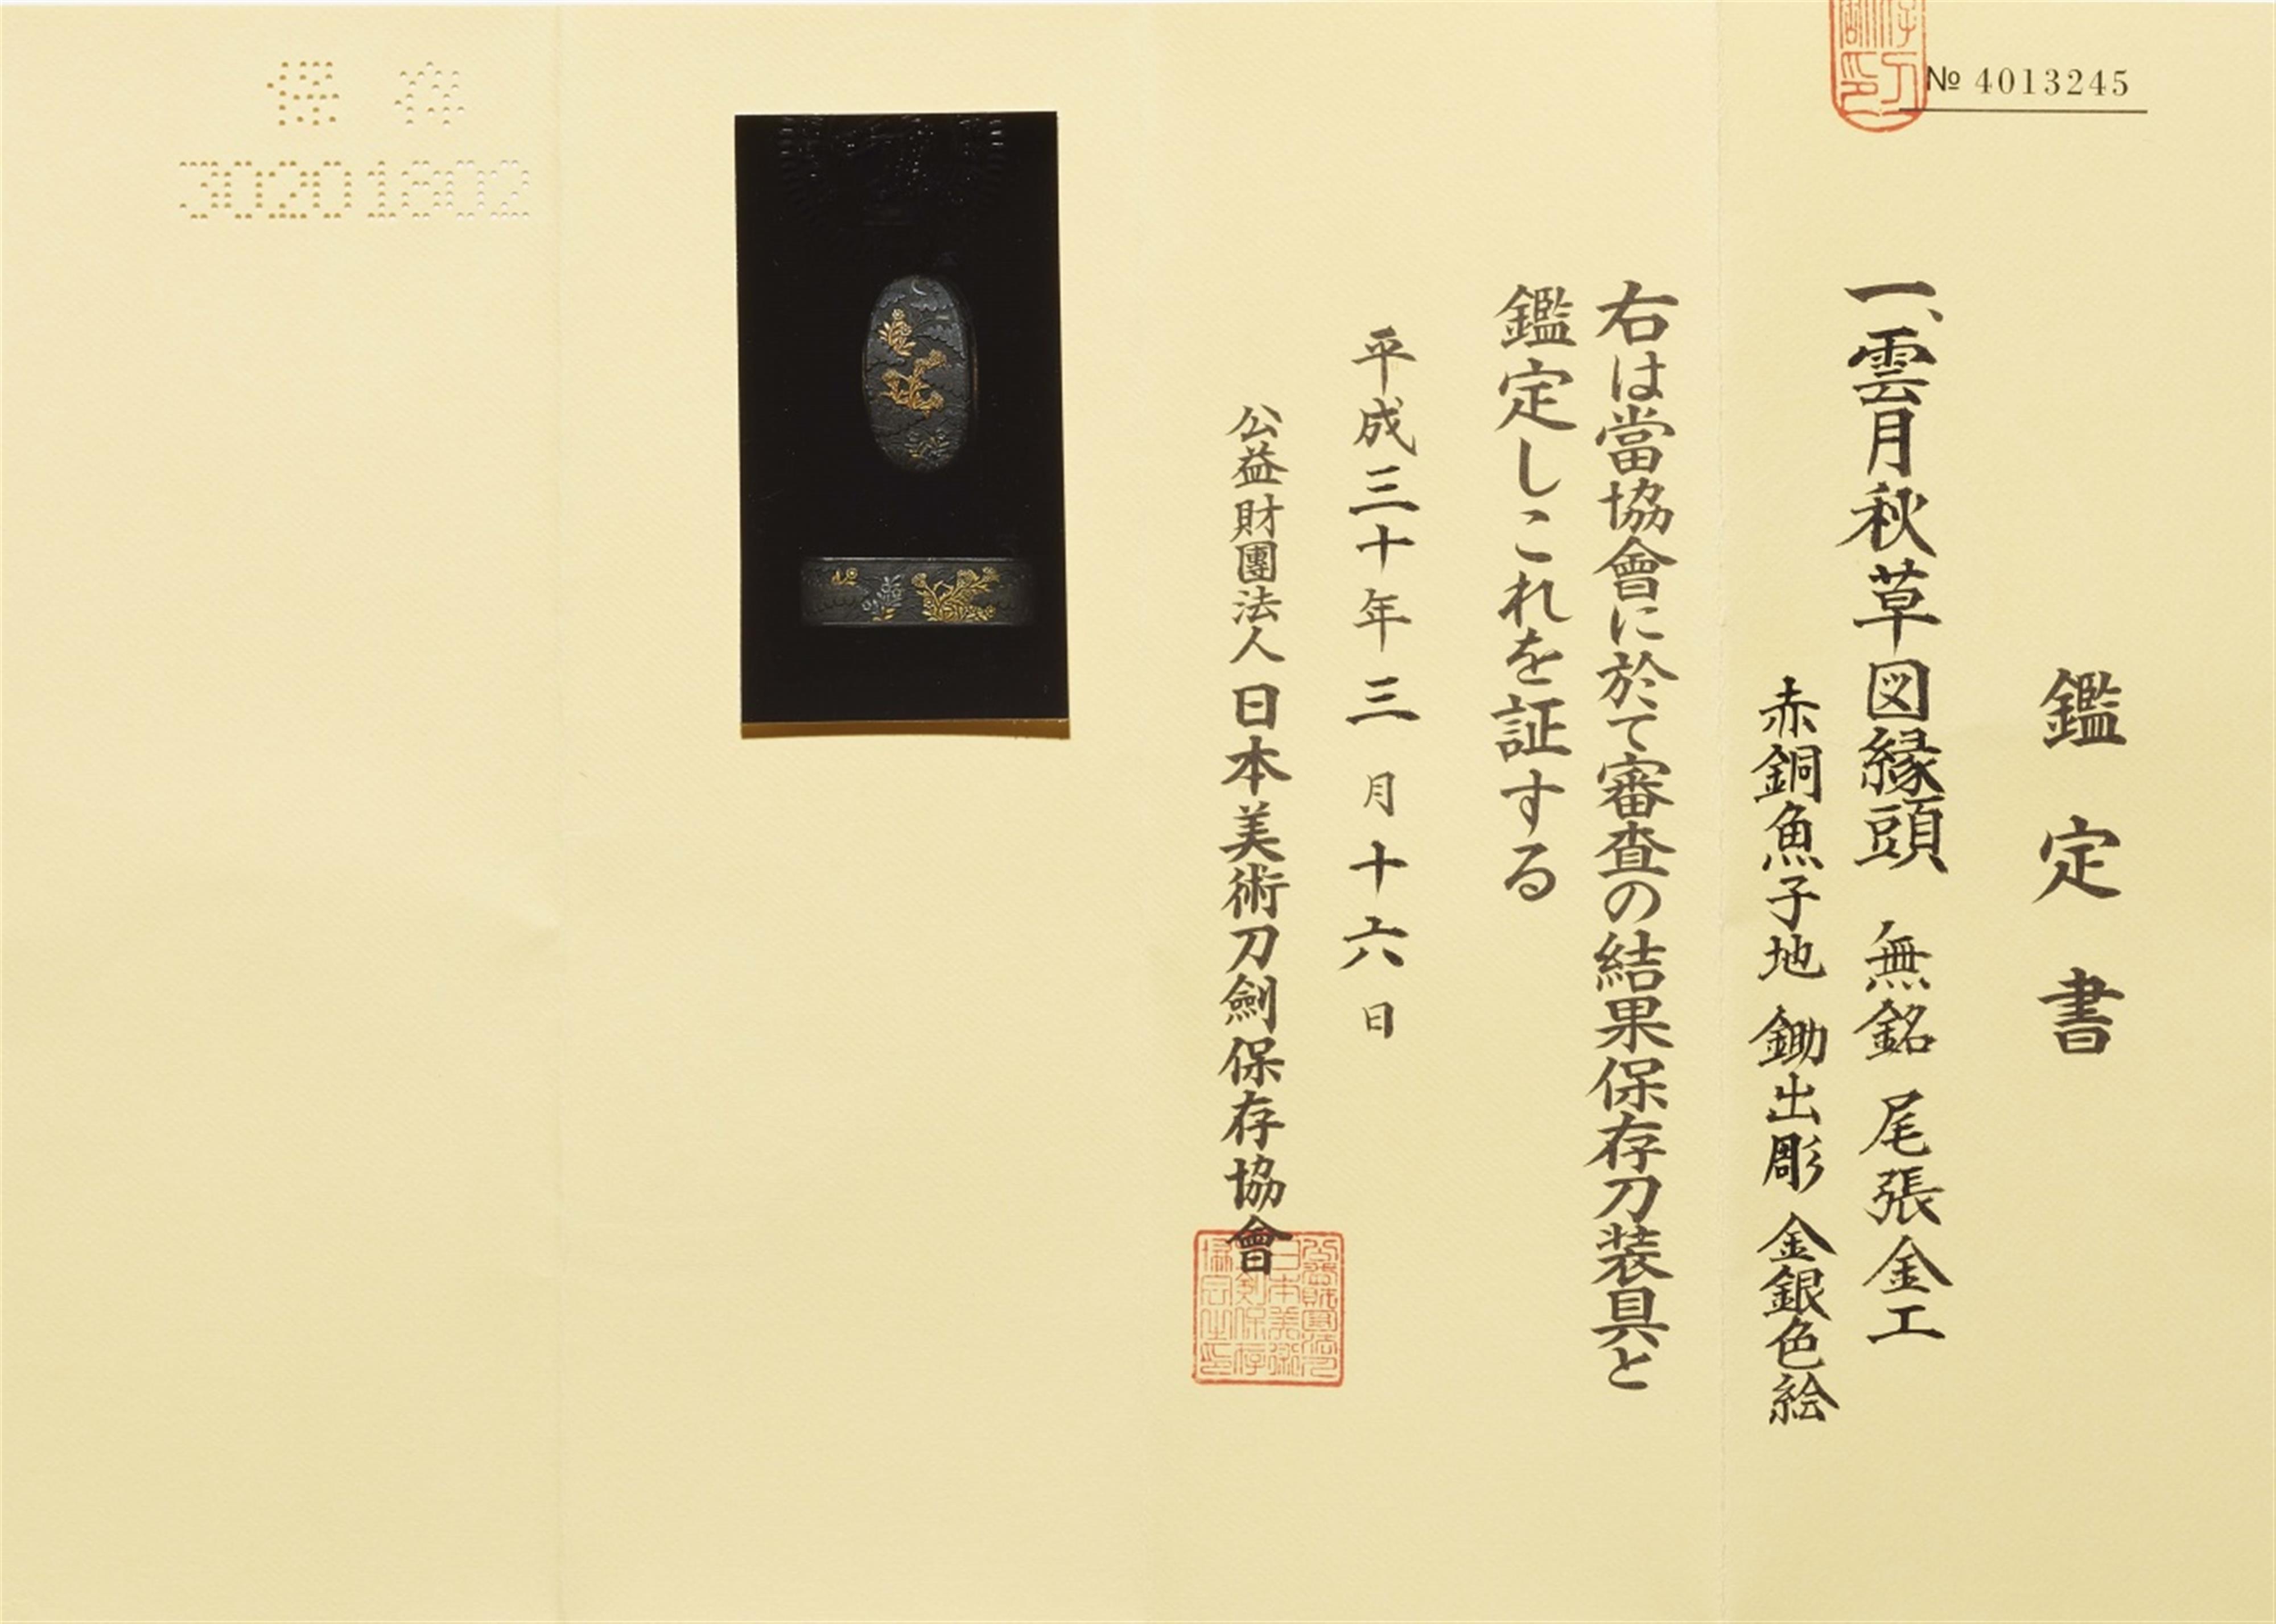 № 4013245
鑑定書
一、雲月秋草図縁頭 無銘 尾張金工
赤銅魚子地 鋤出彫 金銀色絵
右は當協會に於て審査の結果保存刀装具と
鑑定しこれを証する
平成三十年三月十六日
公益財團法人日本美術刀劍保存協會
保存
30201802